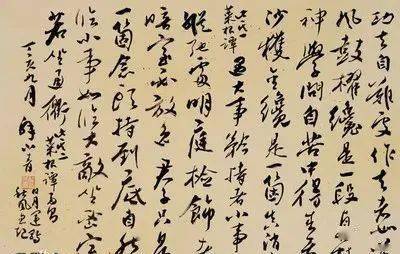 功夫自難處作去者如
風鼓櫂纔是一段真
神學問自苦中得來
沙獲金纔是一箇真消
菜根譚 遇大事矜持者小事
縱弛處明庭檢飾
暗室必放逸君子只是
一箇念頭持到底自然
臨小事如臨大敵坐密室
若坐通衢 菜根譚句
丁亥九月